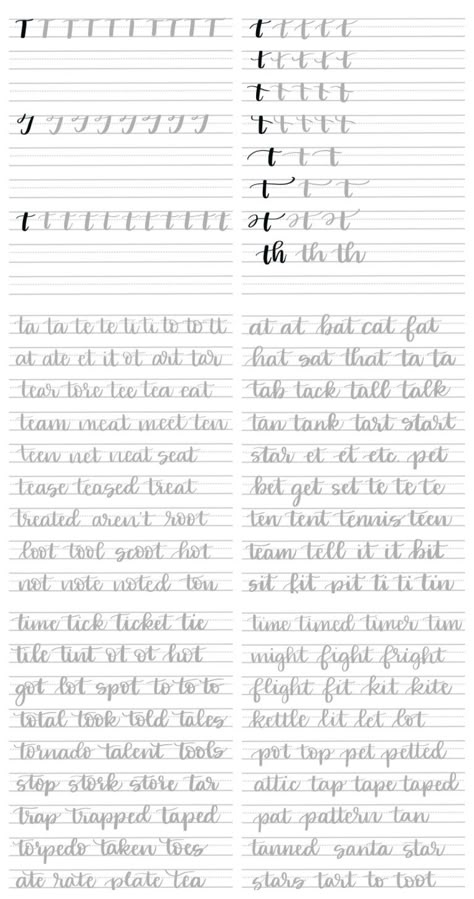 T T T T T T T T T
T T T T T T T T
t t t t t t t t t t t
t t t t t
t t t t t
t t t t t
t t t t t
t t t
t t t
t t t
th th th
ta ta te te ti ti to to tt
at ate et it ot art tar
tear tore tee tea eat
team meat meet ten
teen net neat seat
tease teased treat
treated aren't root
loot tool scoot hot
not note noted ton
at at bat cat fat
hat sat that ta ta
tab tack tall talk
tan tank tart start
star et et etc. pet
bet get set te te te
ten tent tennis teen
team tell it it bit
sit fit pit ti ti tin
time tick ticket tie
tile tint ot ot hot
got lot spot to to to
total took told tales
tornado talent tools
stop stork store tar
trap trapped taped
torpedo taken toes
ate rate plate tea
time timed timer tim
might fight fright
flight fit kit kite
kettle lit let lot
pot top pet petted
attic tap tape taped
pat pattern tan
tanned santa star
stars tart to toot